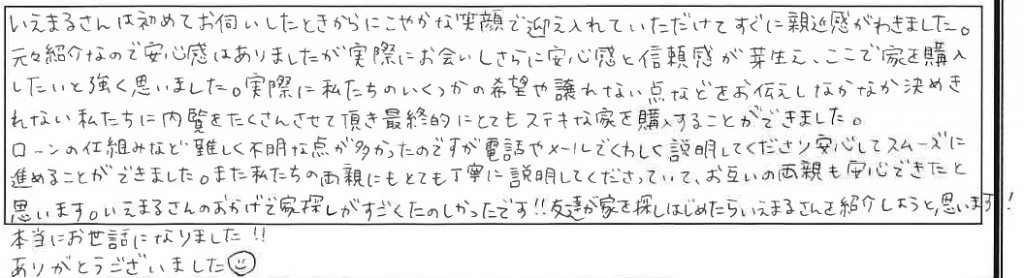 いえまるさんは初めてお伺いしたときからにこやかな笑顔で迎え入れていただけてすぐに親近感がわきました。
元々紹介なので安心感はありましたが実際にお会いしさらに安心感と信頼感が芽生え、ここで家を購入
したいと強く思いました。実際に私たちのいくつかの希望や譲れない点などをお伝えしなかなか決めき
れない私たちに内覧をたくさんさせて頂き最終的にとてもステキな家を購入することができました。
ローンの仕組みなど難しく不明な点が多かったのですが電話やメールでくわしく説明してくださり安心してスムーズに
進めることができました。また私たちの両親にもとても丁寧に説明してくださっていて、お互いの両親も安心できたと
思います。いえまるさんのおかげで家探しがすごくたのしかったです!!友達が家を探しはじめたらいえまるさんを紹介しようと思います!
本当にお世話になりました!!
ありがとうございました☺